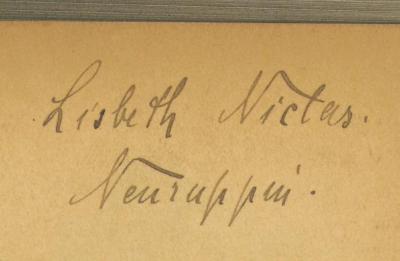 Lisbeth Nictas.
Neuruppin.